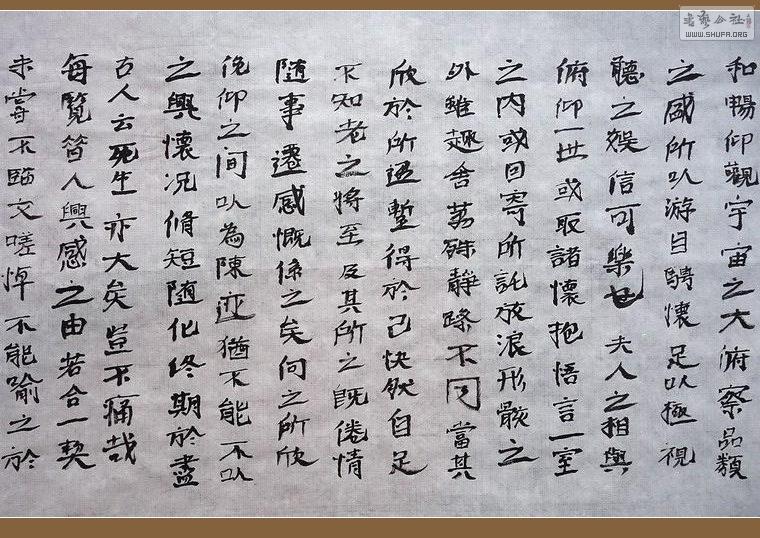 和暢仰觀宇宙之大俯察品類
之盛所以游目騁懷足以極視
聽之娛信可樂也夫人之相與
俯仰一世或取諸懷抱悟言一室
之内或因寄所託放浪形骸之
外雖趣舍萬殊靜躁不同當其
欣於所遇暫得於己快然自足
不知老之將至及其所之既倦情
隨事遷感慨係之矣向之所欣
俛仰之間以為陳迹猶不能不以
之興懷况脩短隨化終期於盡
古人云死生亦大矣豈不痛哉
每覽昔人興感之由若合一契
未嘗不臨文嗟悼不能喻之於
书艺公社
WWW.SHUFA.ORG